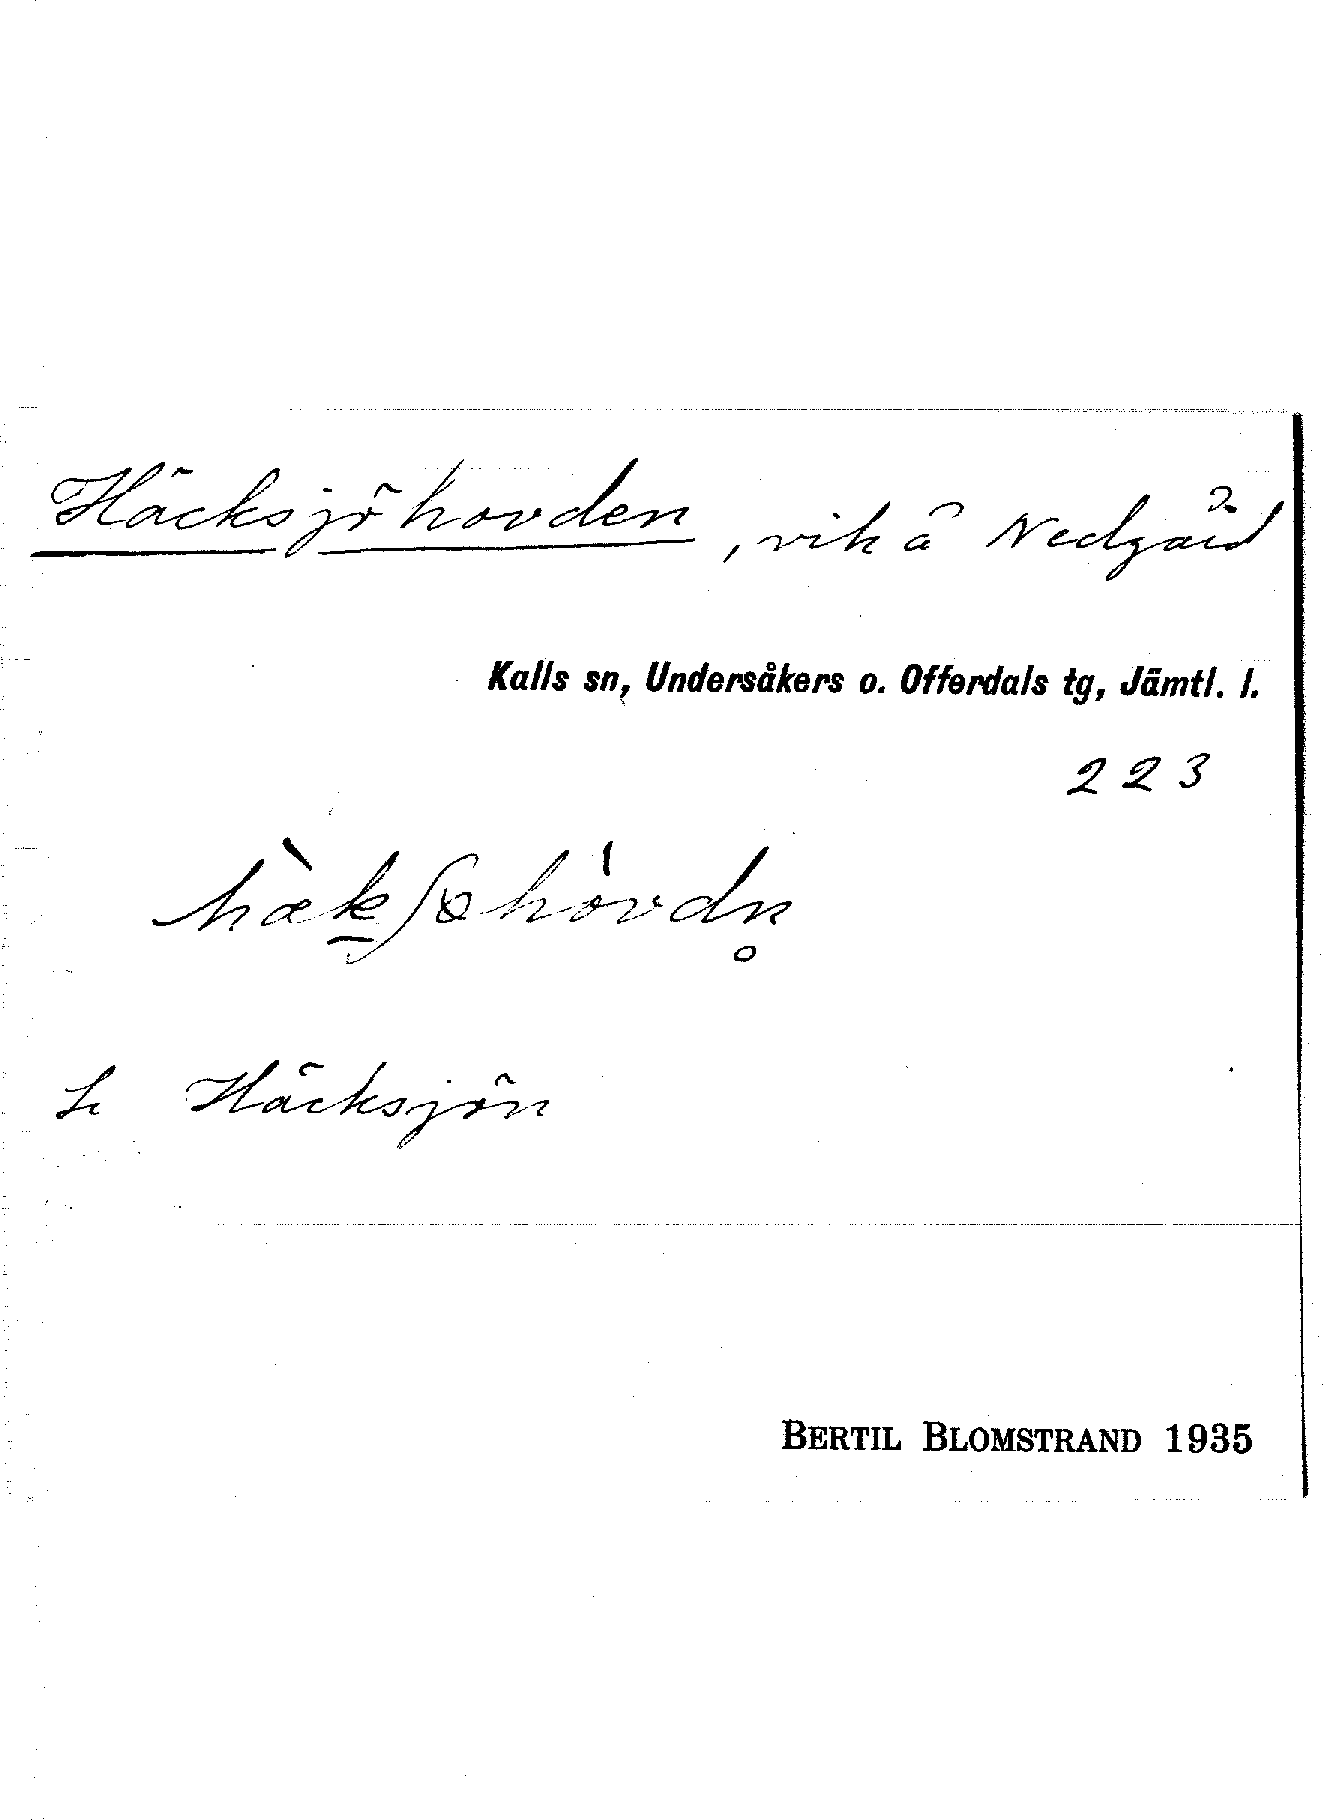 Häcksjöhovden, vik å Nedgård
Kalls sn, Undersåkers o. Offerdals tg, Jämtl. l.
223
Häcksjön
BERTIL BLOMSTRAND 1935